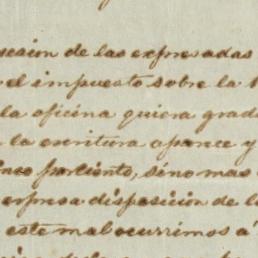 sesion de las expresadas
el impuesto sobre la
la oficina quiera grad
la escritura aparece y
porciento, sino mas
expresa disposicion de l
este mal ocurrimos á